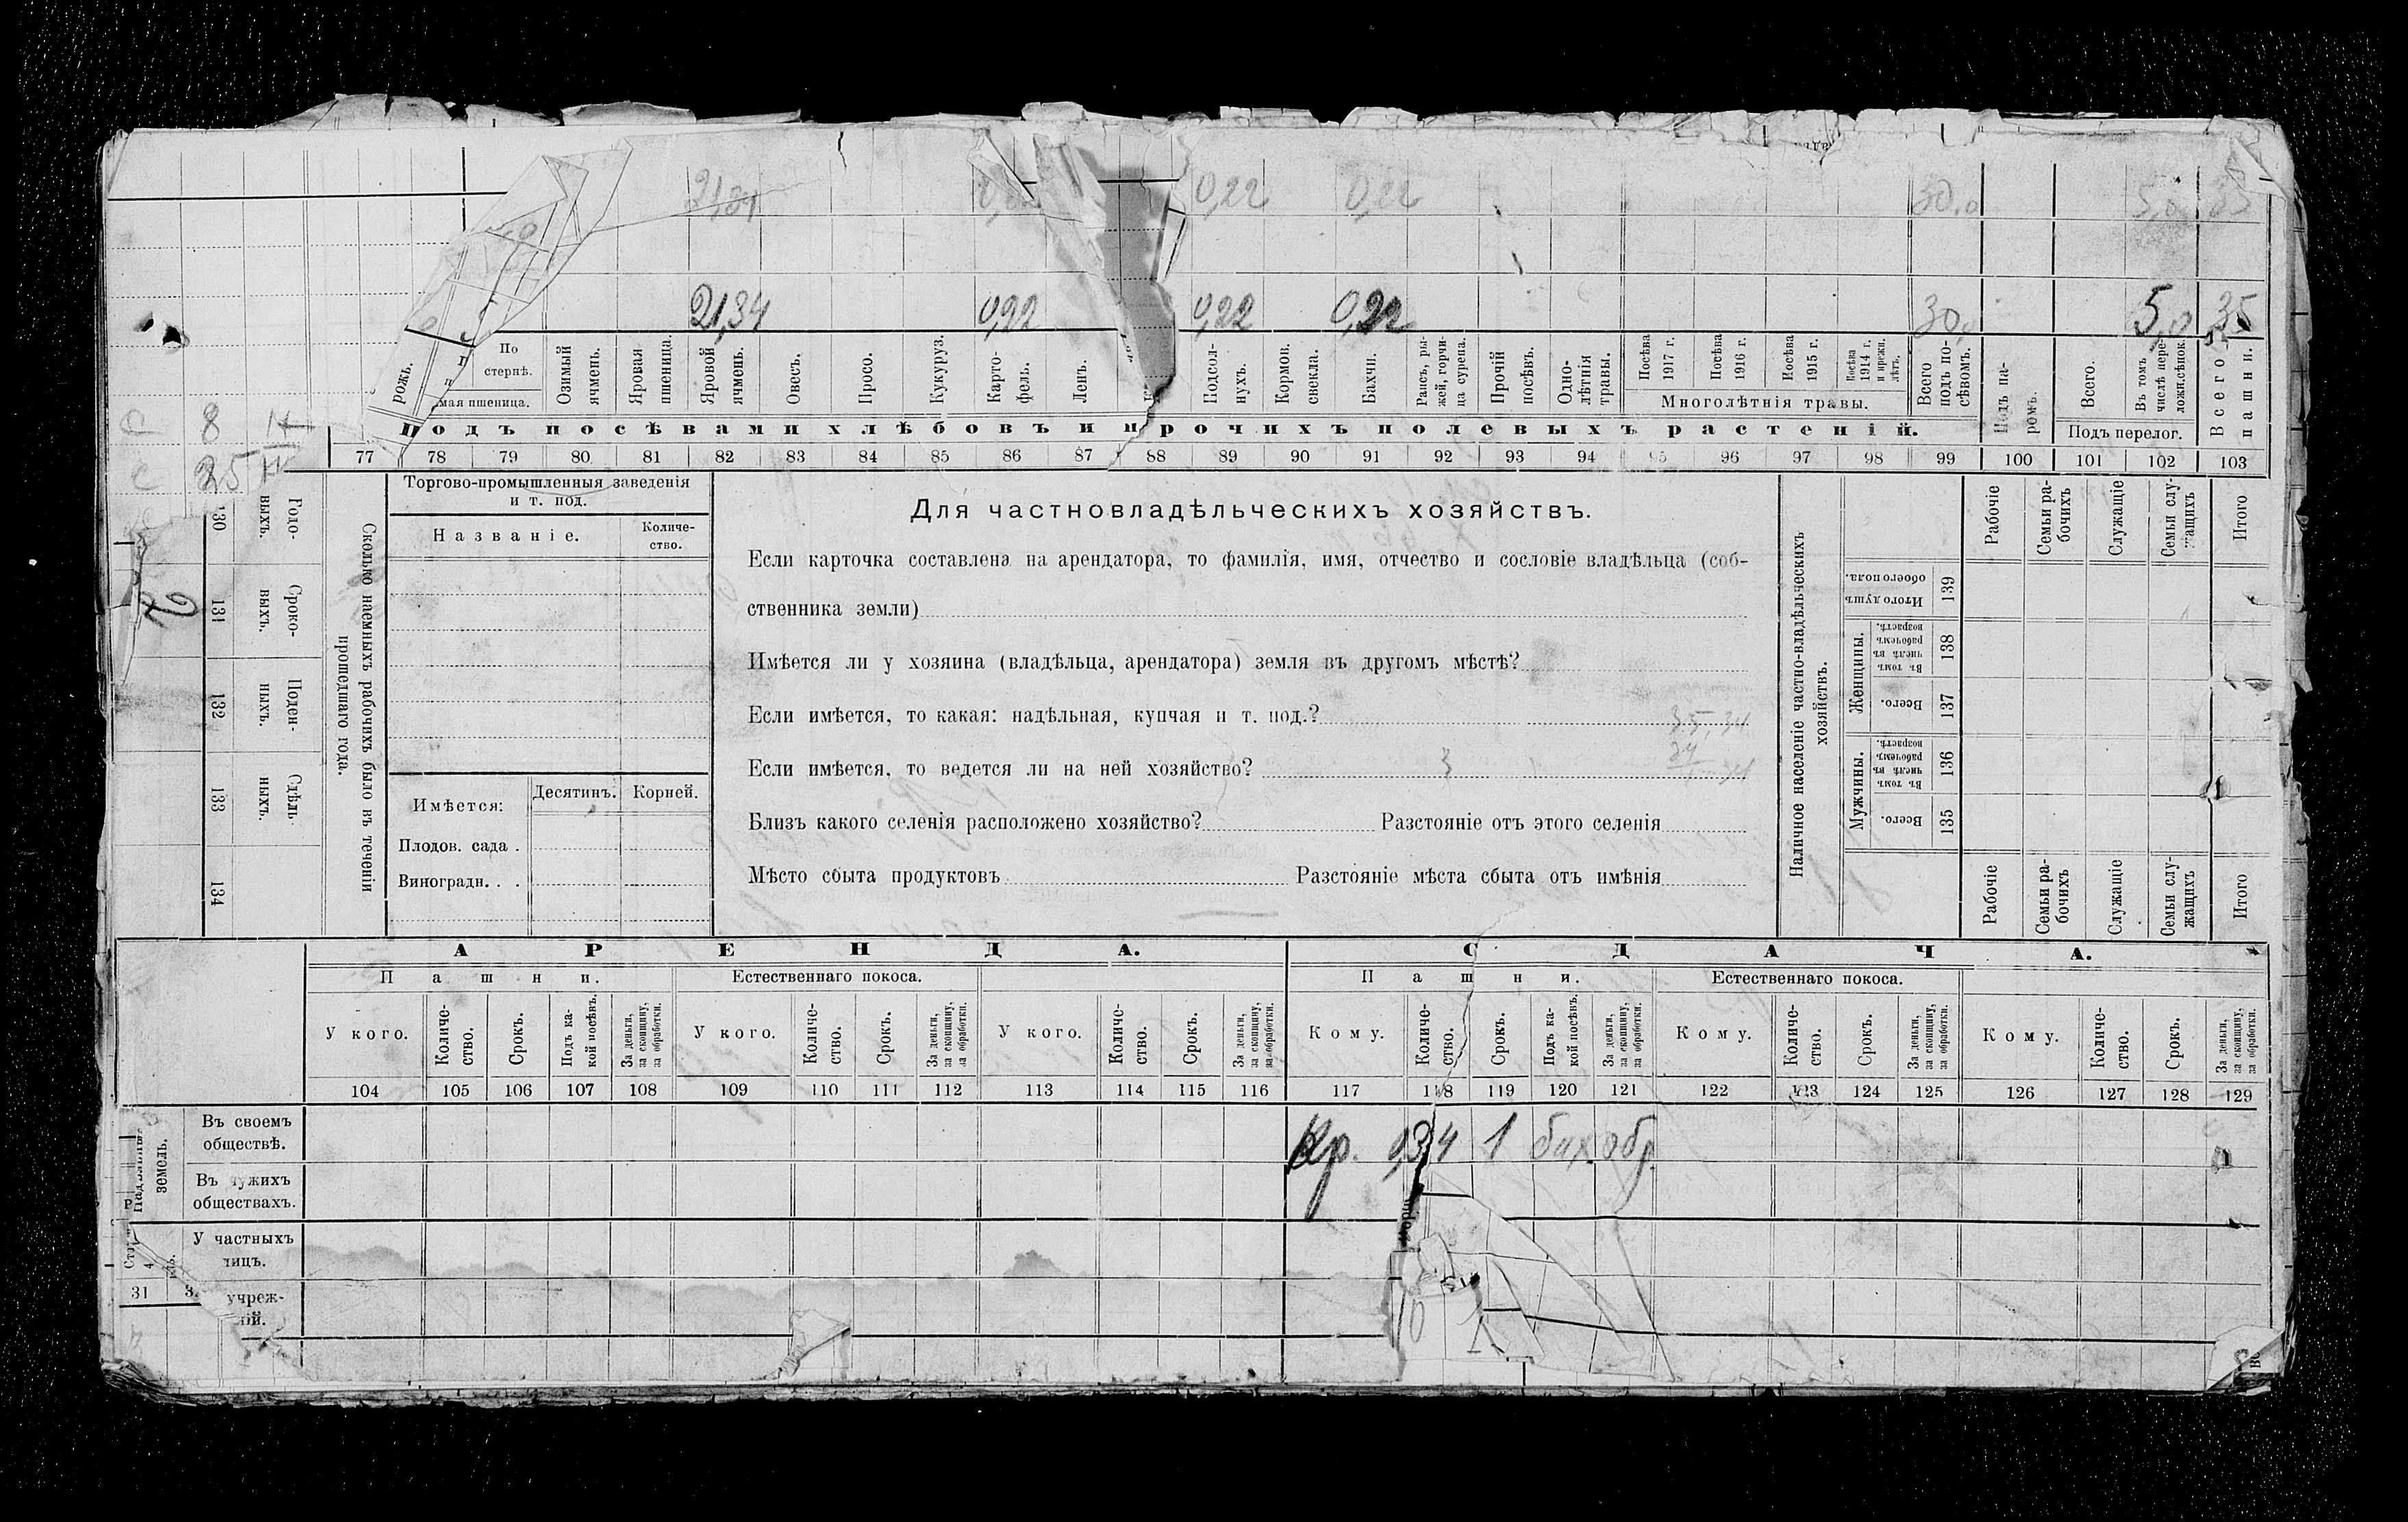 21,34 0,22 0,22 30,0 5,0 35
21,34 0,22 0,22 0,22 30,0 5,0 35
рожь.
По стернѣ.
мая пшеница.
Озимый ячмень.
Яровая пшеница.
Яровой ячмень.
Овесъ.
Просо.
Кукуруз.
Карто-
фель.
Ленъ.
Подсол-
нухъ.
Кормов. свекла.
Бахчи.
Рапсъ, ры-
жей, горчи-
ца сурепа.
Прочій посѣвъ.
Одно-
лѣтнія травы.
Посѣва 1917 г.
Посѣва 1916 г.
Посѣва 1915 г.
Посѣва 1914 г. и прежн. лѣтъ.
Многолѣтнія травы.
Всего подъ по-
сѣвомъ.
Подъ па-
ромъ.
Всего.
Въ томъ числѣ пере-
ложн.сѣнок.
Подъ перелог.
Всего пашни.
Подъ посѣвами хлѣбовъ и прочихъ полевыхъ растеній.
77 78 79 80 81 82 83 84 85 86 87 88 89 90 91 92 93 94 95 96 97 98 99 100 101 102 103
С 8
С 25
Годо-
выхъ.
130
Сроко-
выхъ.
131
Поден-
ныхъ.
132
Сдѣль-
ныхъ.
133
134
Сколько наемныхъ рабочихъ было въ теченіи
прошедшаго года.
Торгово-промышленныя заведенія
и т. под.
Названіе.
Количе-
ство.
Имѣется:
Десятинъ. Корней.
Плодов. сада .
Виноградн. . .
Для частновладѣльческихъ хозяйствъ.
Если карточка составлена на арендатора, то фамилія, имя, отчество и сословіе владѣльца (соб-
ственника земли)
Имѣется ли у хозяина (владѣльца, арендатора) земля въ другомъ мѣстѣ?
Если имѣется, то какая: надѣльная, купчая и т. под.?
Если имѣется, то ведется ли на ней хозяйство?
Близъ какого селенія расположено хозяйство? Разстояніе отъ этого селенія
Мѣсто сбыта продуктовъ Разстояніе мѣста сбыта отъ имѣнія
Наличное населеніе частно-владѣльческихъ
хозяйствъ.
Рабочіе
Семьи ра-
бочихъ
Служащіе
Семьи слу-
жащихъ
Итого
Итого душъ
обоего пола.
139
Женщины.
Въ томъ числѣ въ рабочемъ возрастѣ.
138
Всего.
137
Мужчины.
Въ томъ числѣ въ рабочемъ возрастѣ.
136
Всего.
135
Рабочіе
Семьи ра-
бочихъ
Служащіе
Семьи слу-
жащихъ
Итого
АРЕНДА. СДАЧА.
Пашни. Естественнаго покоса. Пашни. Естественнаго покоса.
У кого.
Количе-
ство.
Срокъ.
Подъ ка-
кой посѣвъ.
За деньги,
за скопщину,
за обработки.
У кого.
Количе-
ство.
Срокъ.
За деньги,
за скопщину,
за обработки.
У кого.
Количе-
ство.
Срокъ.
За деньги,
за скопщину,
за обработки.
Кому.
Количе-
ство.
Срокъ.
Подъ ка-
кой посѣвъ.
За деньги,
за скопщину,
за обработки.
Кому.
Количе-
ство.
Срокъ.
За деньги,
за скопщину,
за обработки.
Кому.
Количе-
ство.
Срокъ.
За деньги,
за скопщину,
за обработки.
104 105 106 107 108 109 110 111 112 113 114 115 116 117 118 119 120 121 122 123 124 125 126 127 128 129
земель.
Въ своемъ
обществѣ.
Кр. 1 бах. обр.
Въ чужихъ
обществахъ.
У частныхъ
лицъ.
31
учреж-